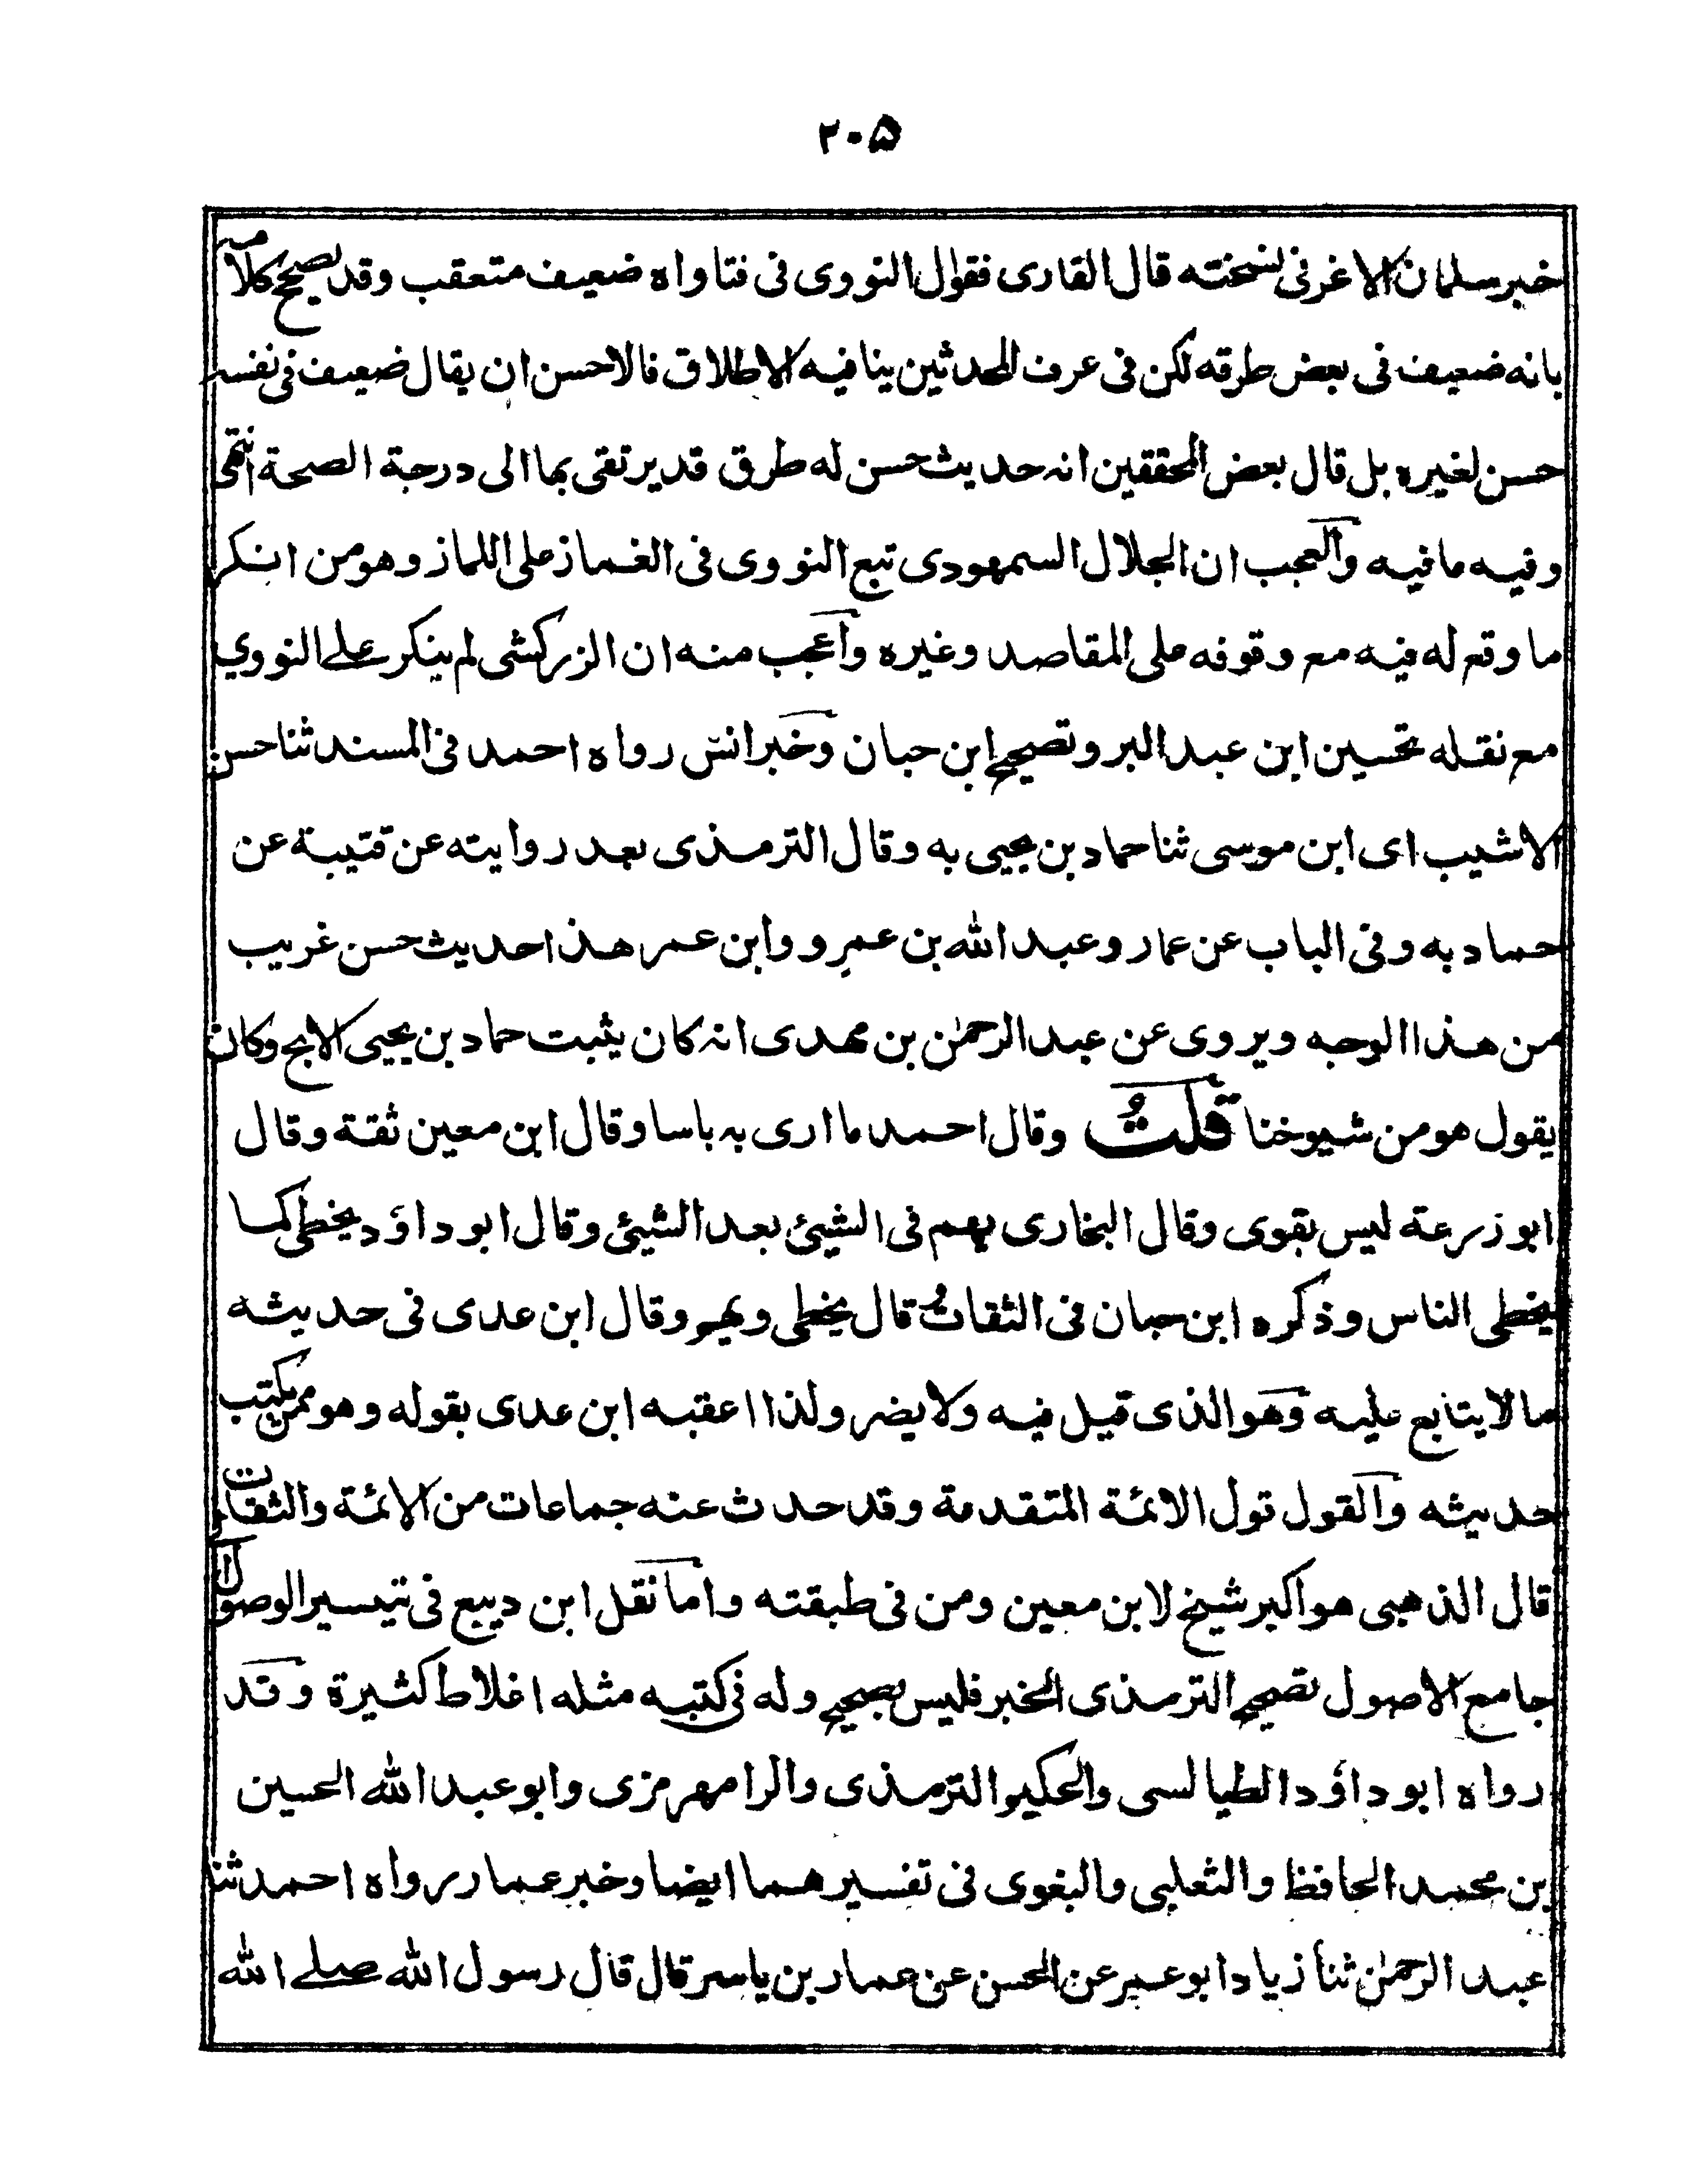 ٢٠۵
خبر سلمان الاغر فى نسخته قال القارى فقول النووى فى فتاواه ضعيف متعقب وقد يصحح كلامه
بانه ضعيف فى بعض طرقه لكن فى عرف المحدثين ينافيه الاطلاق فالاحسن ان يقال ضعيف فى نفسه
حسن لغيره بل قال بعض المحققين انه حديث حسن له طرق قد يرتقى بها الى درجة الصحة انتهى
وفيه ما فيه والعجب ان الجلال السمهودى تبع النووى فى الغماز على اللماز وهو من انكر
ما وقع له فيه مع وقوفه على المقاصد وغيره واعجب منه ان الزركشى لم ينكر على النووي
مع نقله تحسين ابن عبد البر وتصحيح ابن حبان وخبر انس رواه احمد فى المسند ثنا حسن
الاشيب اى ابن موسى ثنا حماد بن يحيى به وقال الترمذى بعد روايته عن قتيبة عن
حماد به وفى الباب عن عمار وعبد الله بن عمرٍو وابن عمر هذا حديث حسن غريب
من هذا الوجه ويروى عن عبد الرحمٰن بن مهدى انه كان يثبت حماد بن يحيى الابح وكان
يقول هو من شيوخنا قلتُ وقال احمد ما ارى به باسا وقال ابن معين ثقة وقال
ابو زرعة ليس بقوى وقال البخارى يهم فى الشيئ بعد الشيئ وقال ابو داؤد يخطى كما
يخطى الناس وذكره ابن حبان فى الثقات قال يخطى ويهم وقال ابن عدى فى حديثه
ما لا يتابع عليه وهو الذى قيل فيه ولا يضر ولذا اعقبه ابن عدى بقوله وهو ممن يكتب
حديثه والقول قول الائمة المتقدمة وقد حدث عنه جماعات من الائمة والثقات
قال الذهبى هو اكبر شيخ لابن معين ومن فى طبقته واما نقل ابن ديبع فى تيسير الوصول الى
جامع الاصول تصحيح الترمذى الخبر فليس بصحيح وله فى كتبه مثله اغلاط كثيرة وقد
رواه ابو داؤد الطيالسى والحكيم الترمذى والرامهرمزى وابو عبد الله الحسين
بن محمد الحافظ والثعلبى والبغوى فى تفسيرهما ايضا وخبر عمار رواه احمد ثنا
عبد الرحمٰن ثنا زياد ابو عمر عن الحسن عن عمار بن ياسر قال قال رسول الله صلے الله